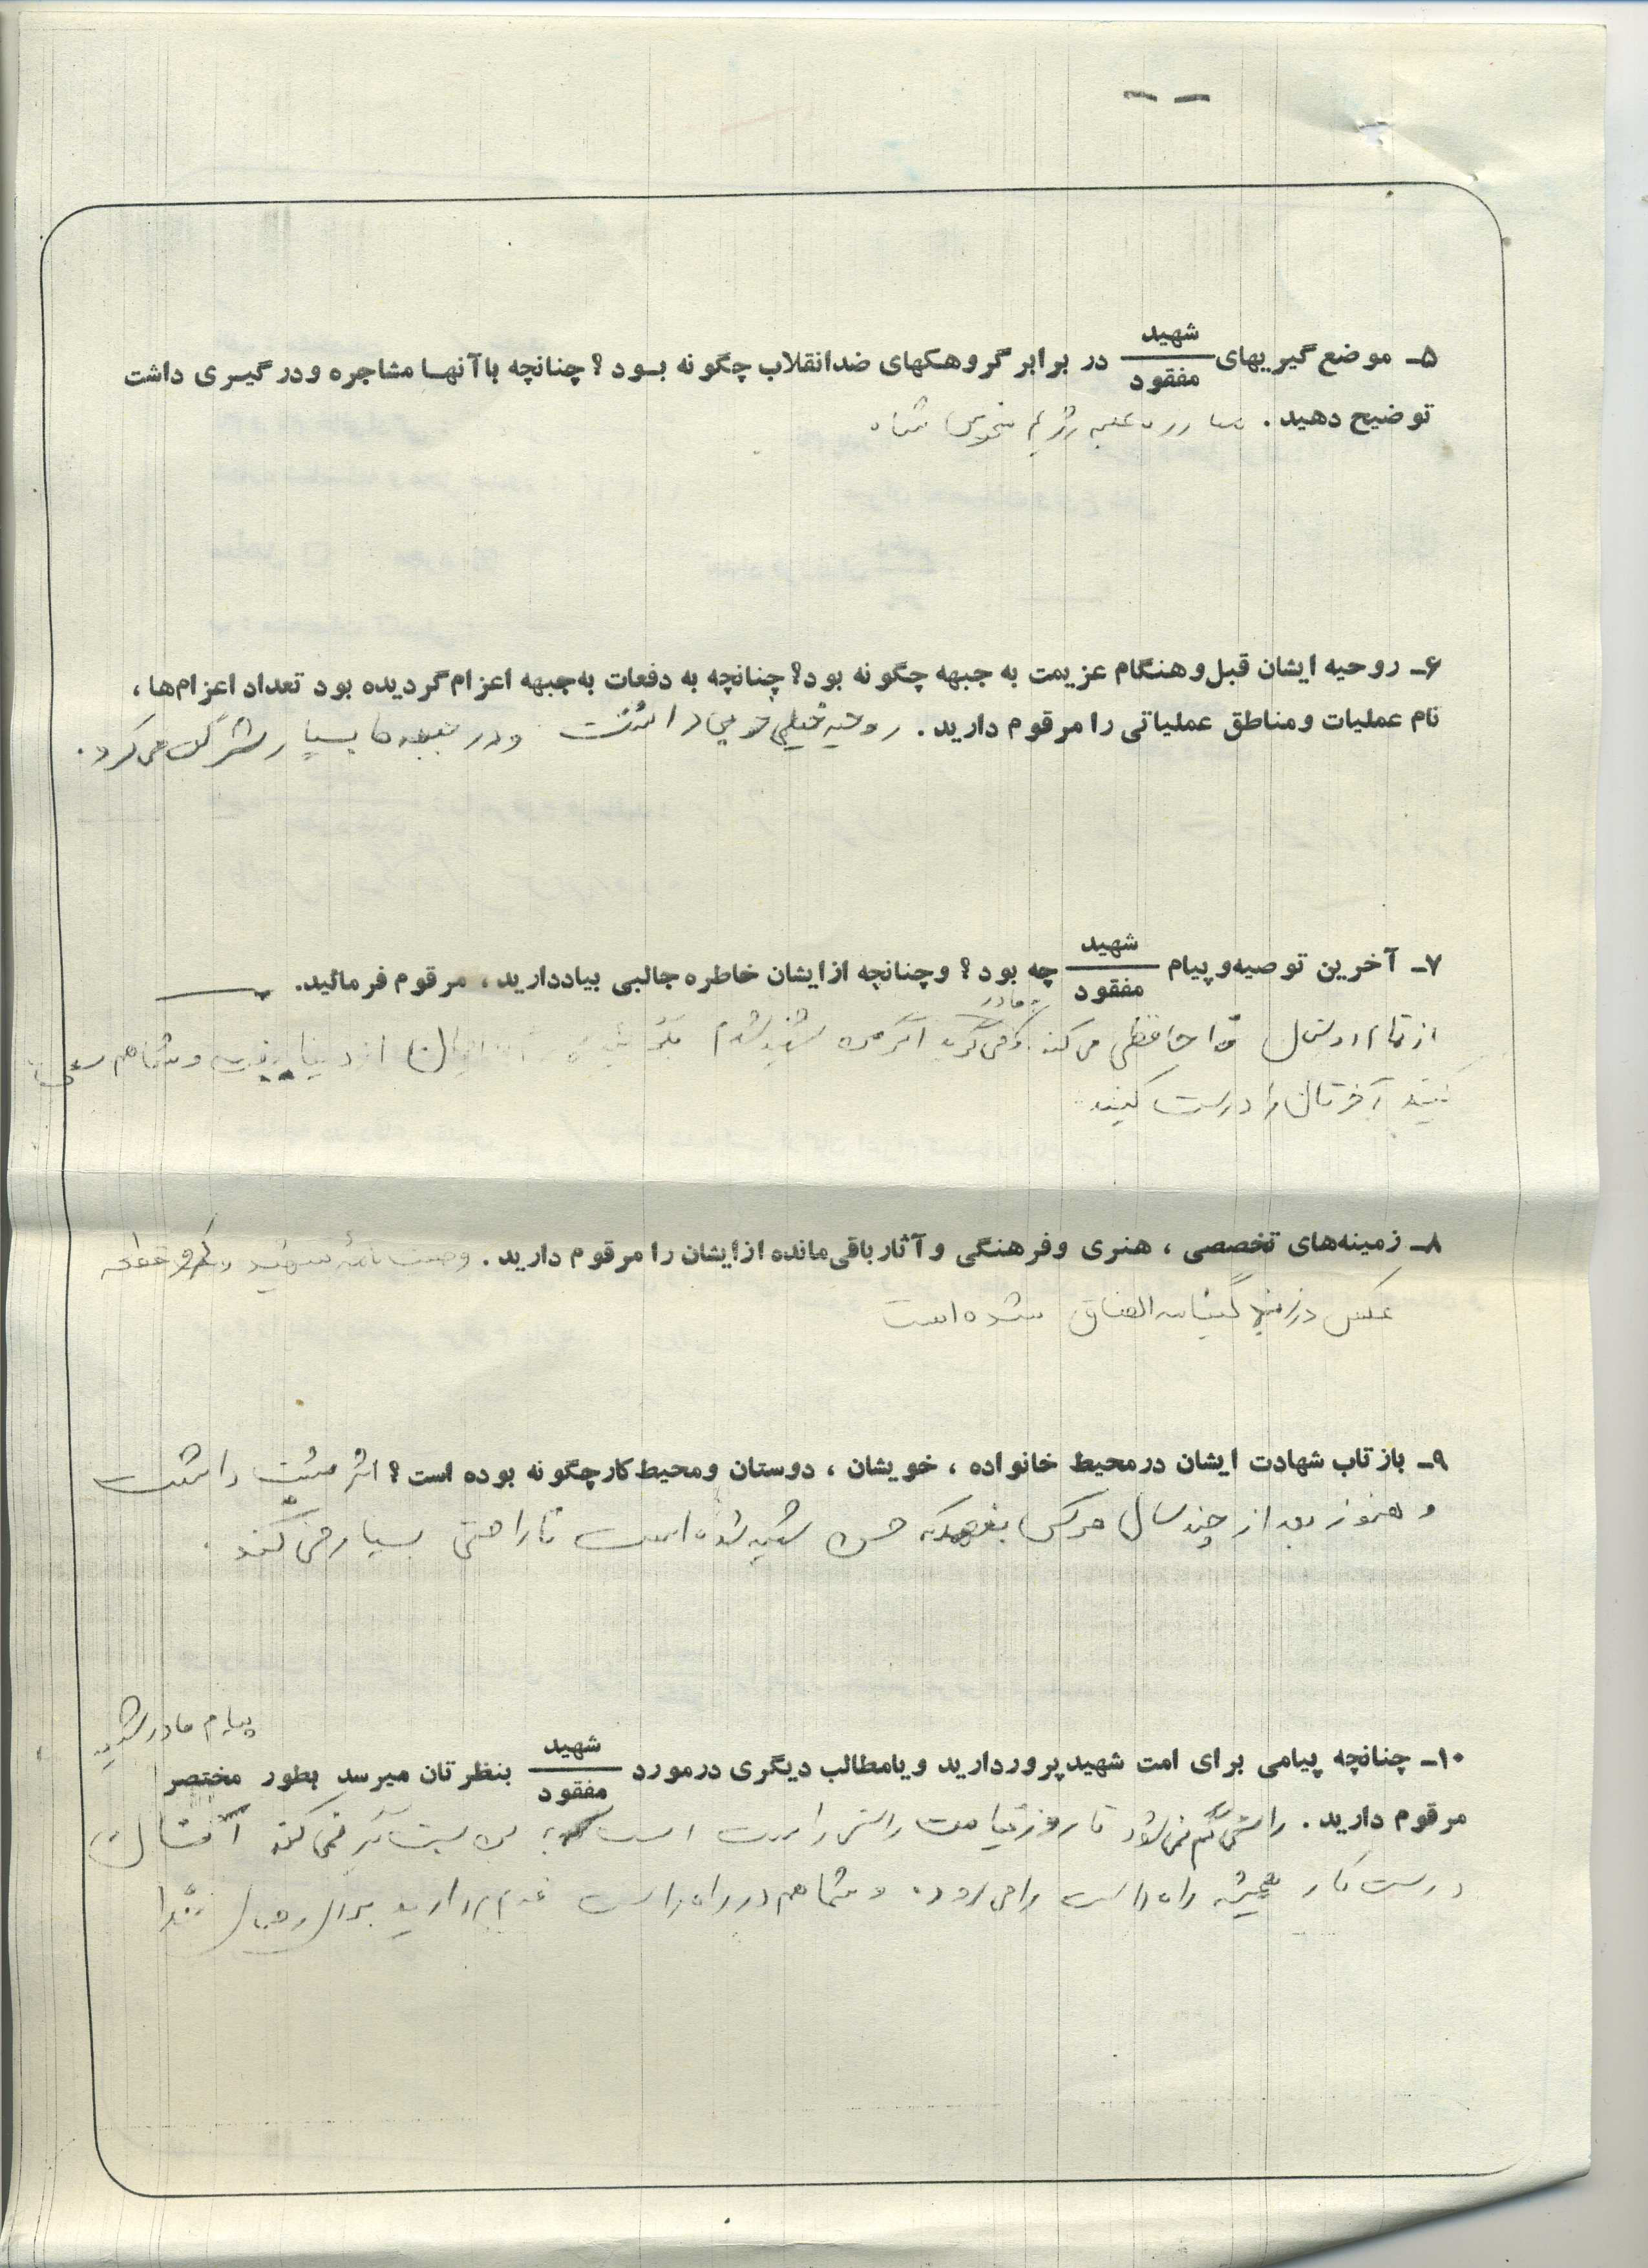 ۵ـ موضع گیریهای شهید / مفقود در برابر گروهکهای ضدانقلاب چگونه بود؟ چنانچه با آنها مشاجره و درگیری داشت
توضیح دهید. رژیم منحوس شاه
۶ـ روحیه ایشان قبل و هنگام عزیمت به جبهه چگونه بود؟ چنانچه به دفعات به جبهه اعزام گردیده بود تعداد اعزام‌ها،
نام عملیات و مناطق عملیاتی را مرقوم دارید. روحیه خیلی خوبی داشت و در جبهه ها بسیار شرکت می کرد.
۷ـ آخرین توصیه و پیام شهید / مفقود چه بود؟ و چنانچه از ایشان خاطره جالبی بیاد دارید، مرقوم فرمائید.
مادر
از تمام خداحافظی می کند و می گوید اگر من شهید شدم از دنیا رفت و شما هم سعی
کنید آخرتان را درست کنید
۸ـ زمینه‌های تخصصی، هنری و فرهنگی و آثار باقی‌مانده از ایشان را مرقوم دارید. وصیت نامه شهید و قطعه
عکس در الصاق شده است
۹ـ بازتاب شهادت ایشان در محیط خانواده، خویشان، دوستان و محیط کار چگونه بوده است؟ اثر مثبت داشت
و هنوز بعد از چند سال هر کس بفهمد که حسن شهید شده است ناراحتی بسیار می کند.
پیام مادر شهید
۱۰ـ چنانچه پیامی برای امت شهیدپرور دارید و یا مطالب دیگری در مورد شهید / مفقود بنظرتان میرسد بطور مختصر
مرقوم دارید. راهش گم نمی شود تا روز قیامت راهش راست است
درست کار همیشه راه راست را می رود و شما هم در راه راست قدم بردارید